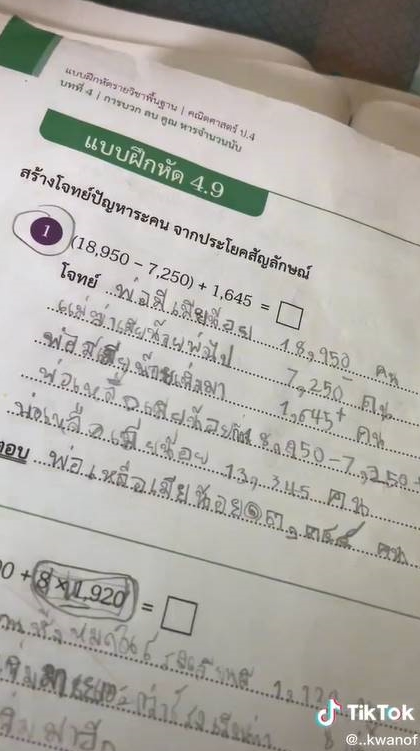 แบบฝึกหัดรายวิชาพื้นฐาน | คณิตศาสตร์ ป.4
บทที่ 4 | การบวก ลบ คูณ หารจำนวนนับ
แบบฝึกหัด 4.9
สร้างโจทย์ปัญหาระคน จากประโยคสัญลักษณ์
1 (18,950 − 7,250) + 1,645 =
โจทย์ พ่อมีเมียน้อย 18,950 คน
แม่ฆ่าเมียน้อยพ่อไป 7,250 คน
พ่อมีเมียน้อยเพิ่มมา 1,645 คน
พ่อเหลือเมียน้อยกี่ 18,950 − 7,250 +
พ่อเหลือเมียน้อย 13,345 คน
ตอบ พ่อเหลือเมียน้อย ๑๓,๓๔๕ คน
0 + 8 × 1,920 =
TikTok
@..kwanof